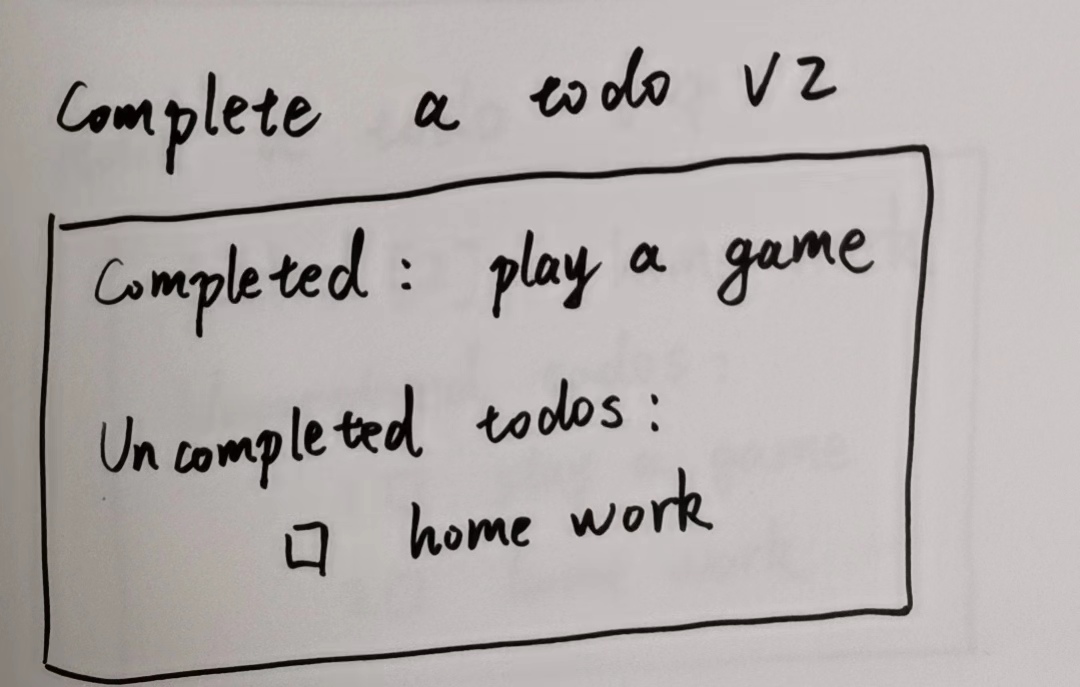 Complete a todo V2
Completed: play a game
Uncompleted todos:
□ home work